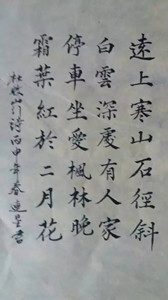 遠上寒山石徑斜
白雲深處有人家
停車坐愛楓林晚
霜葉紅於二月花
杜牧山行詩丙申年春書